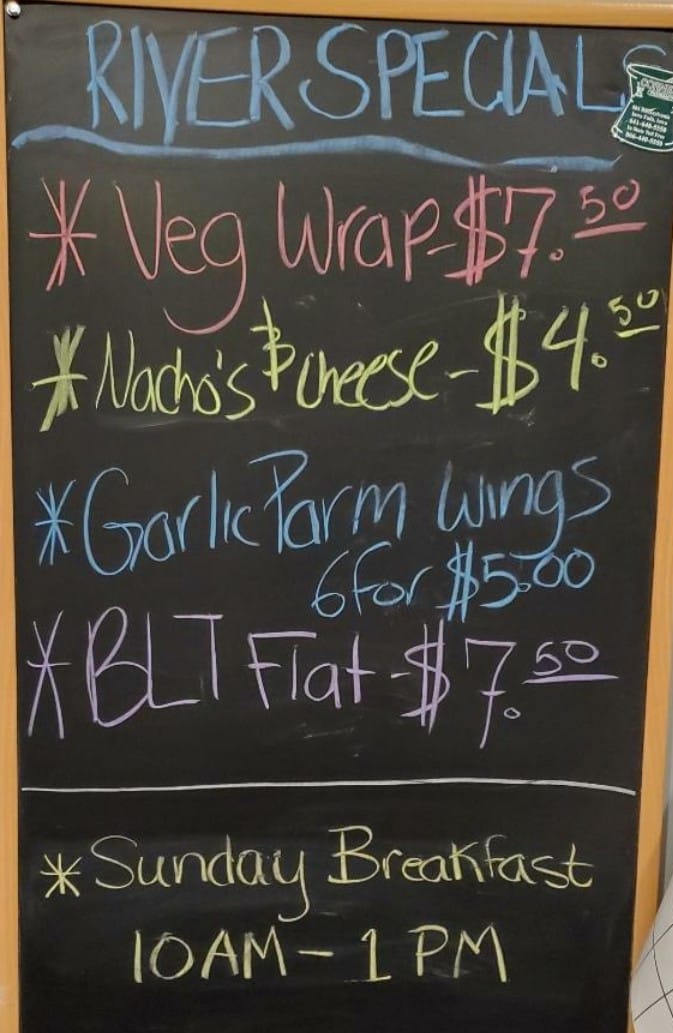 RIVER SPECIALS
* Veg Wrap-$7.50
* Nacho's & cheese-$4.50
* Garlic Parm Wings
6 for $5.00
* BLT Flat-$7.50
* Sunday Breakfast
10AM-1PM
Iowa Falls, Iowa